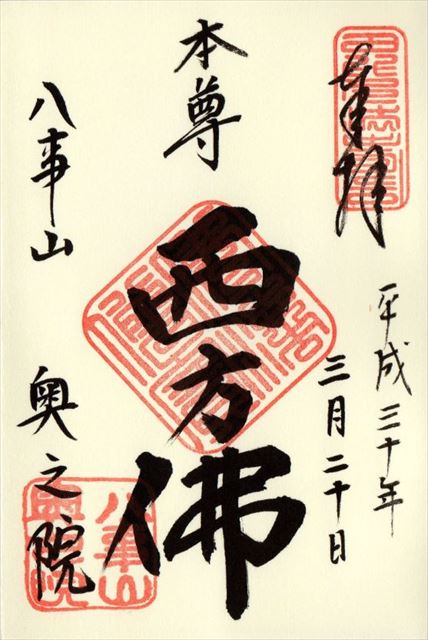 奉拝
平成三十年
三月二十日
本尊
西方佛
八事山
奥之院
八事山
奥之院